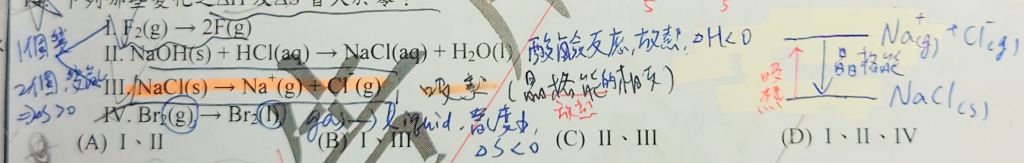 下列那些變化之ΔH及ΔS皆大於零?
I. F₂(g) → 2F(g)
1個變
II. NaOH(s) + HCl(aq) → NaCl(aq) + H₂O(l) 酸鹼反應,放熱,ΔH<0
2個
⇒ΔS>0
III. NaCl(s) → Na⁺(g) + Cl⁻(g) 吸熱 (晶格能的相反)
放熱
IV. Br₂(g) → Br₂(l) gas → liquid, 亂度小, ΔS<0
(A) I、II (B) I、III (C) II、III (D) I、II、IV
Na⁺(g) + Cl⁻(g)
吸熱
晶格能
NaCl(s)
5 5